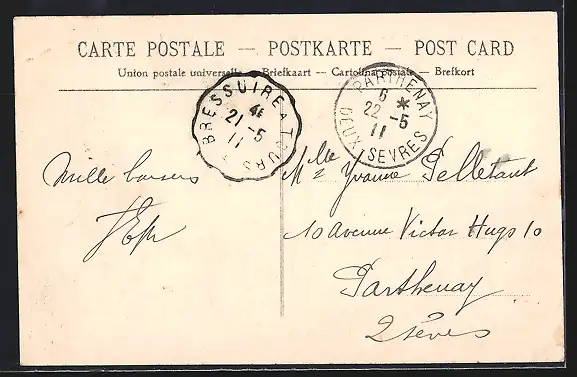 CARTE POSTALE — POSTKARTE — POST CARD
Union postale universelle — Briefkaart — Cartolina postale — Brefkort
BRESSUIRE A TOURS
21 -5
11
PARTHENAY
6 *
22 -5
11
DEUX SEVRES
Mille baisers
Mlle Yvonne Pelletant
10 Avenue Victor Hugo 10
Parthenay
2 Sèvres